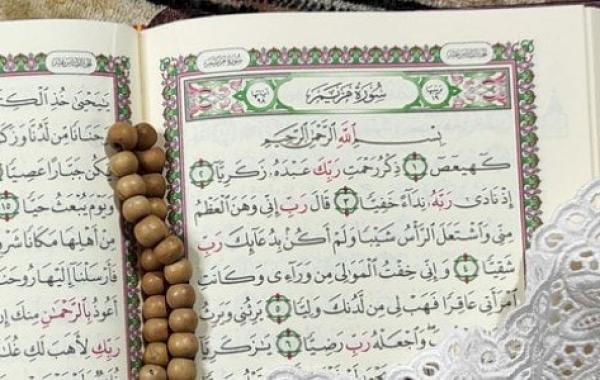 سُورَةُ مَرْيَمَ
سُورَةُ مَرْيَمَ
بِسْمِ ٱللَّهِ ٱلرَّحْمَـٰنِ ٱلرَّحِيمِ
كٓهيعٓصٓ ١ ذِكْرُ رَحْمَتِ رَبِّكَ عَبْدَهُۥ زَكَرِيَّآ ٢
إِذْ نَادَىٰ رَبَّهُۥ نِدَآءً خَفِيًّا ٣ قَالَ رَبِّ إِنِّي وَهَنَ ٱلْعَظْمُ
مِنِّي وَٱشْتَعَلَ ٱلرَّأْسُ شَيْبًا وَلَمْ أَكُنۢ بِدُعَآئِكَ رَبِّ
شَقِيًّا ٤ وَإِنِّي خِفْتُ ٱلْمَوَٰلِيَ مِن وَرَآءِي وَكَانَتِ
ٱمْرَأَتِي عَاقِرًا فَهَبْ لِي مِن لَّدُنكَ وَلِيًّا ٥ يَرِثُنِي وَيَرِثُ
وَٱجْعَلْهُ رَبِّ رَضِيًّا ٦ يَـٰزَكَرِيَّآ
يَـٰيَحْيَىٰ خُذِ ٱلْكِتَـ
حَنَانًا مِّن لَّدُنَّا وَزَكَ
يَكُن جَبَّارًا عَصِيًّا
وَيَوْمَ يُبْعَثُ حَيًّا ١٥
مِنْ أَهْلِهَا مَكَانًا شَر
فَأَرْسَلْنَآ إِلَيْهَا رُوحَنَا
أَعُوذُ بِٱلرَّحْمَـٰنِ مِنكَ إِن
رَبِّكِ لِأَهَبَ لَكِ غُلَـ